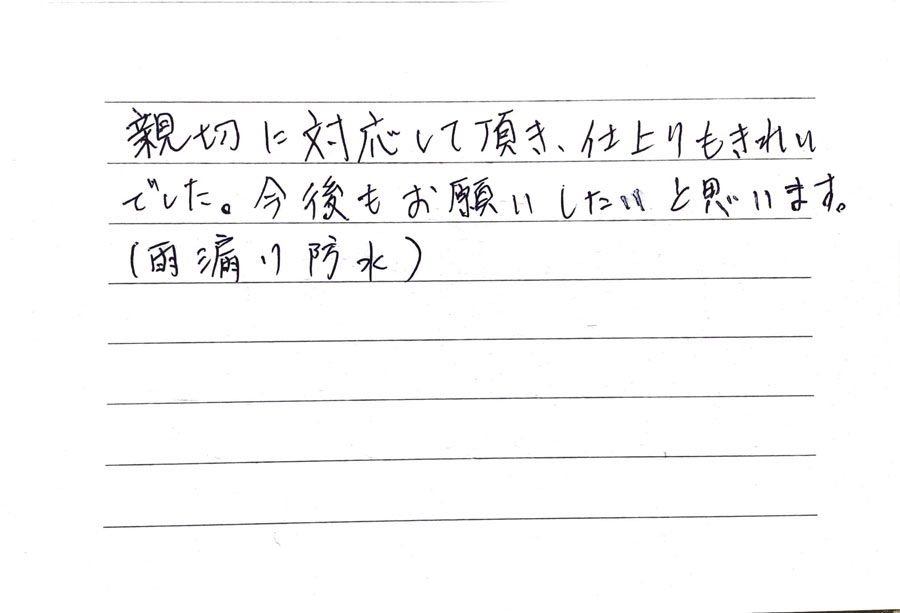 親切に対応して頂き、仕上りもきれい
でした。今後もお願いしたいと思います。
(雨漏り防水)